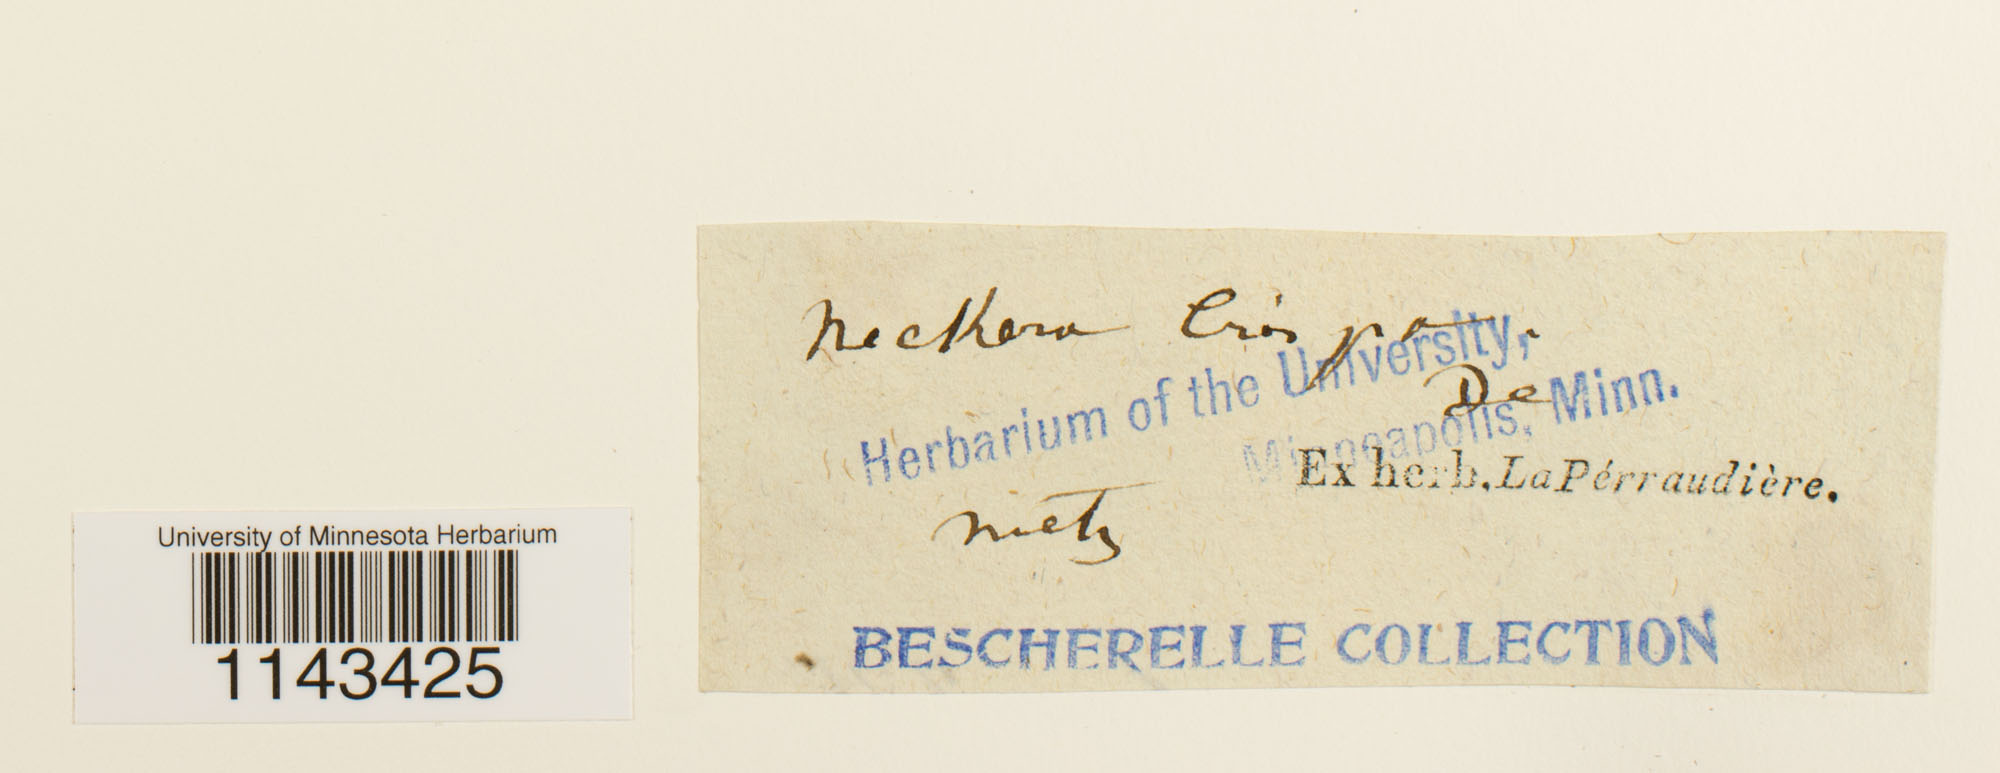 Neckera Crispa.
Herbarium of the University,
Minneapolis, Minn.
De
Ex herb. La Pérraudière.
Metz
BESCHERELLE COLLECTION
University of Minnesota Herbarium
1143425